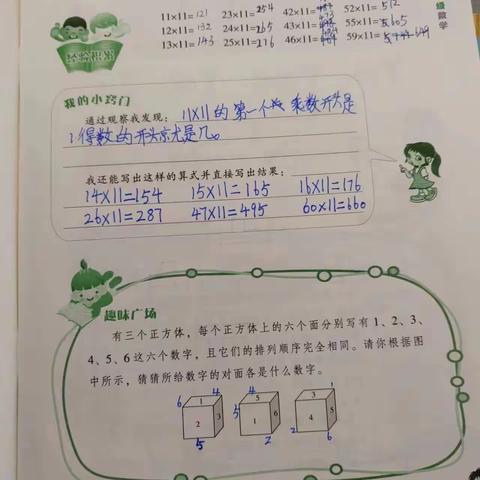 11×11=121 23×11=254 42×11= 52×11=512
12×11=132 24×11=265 43×11= 55×11=5665
13×11=143 25×11=276 46×11= 59×11= 649
级数学
经验积累
我的小窍门
通过观察我发现：11×11的第一个 乘数开头是
1,得数的开头京尤是几。
我还能写出这样的算式并直接写出结果：
14×11=154 15×11=165 16×11=176
26×11=287 47×11=495 60×11=660
趣味广场
有三个正方体，每个正方体上的六个面分别写有1、2、3、
4、5、6这六个数字，且它们的排列顺序完全相同。请你根据图
中所示，猜猜所给数字的对面各是什么数字。
6 1 4 2 3 5
4 5 5 1 6 2
1 3 4 5 2 6